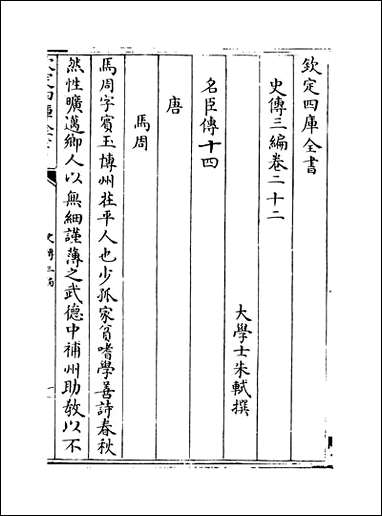 欽定四庫全書
史傳三編卷二十二
大學士朱軾撰
名臣傳十四
唐
馬周
馬周字賓王博州茌平人也少孤家貧嗜學善詩春秋
然性曠邁鄉人以無細謹薄之武德中補州助教以不